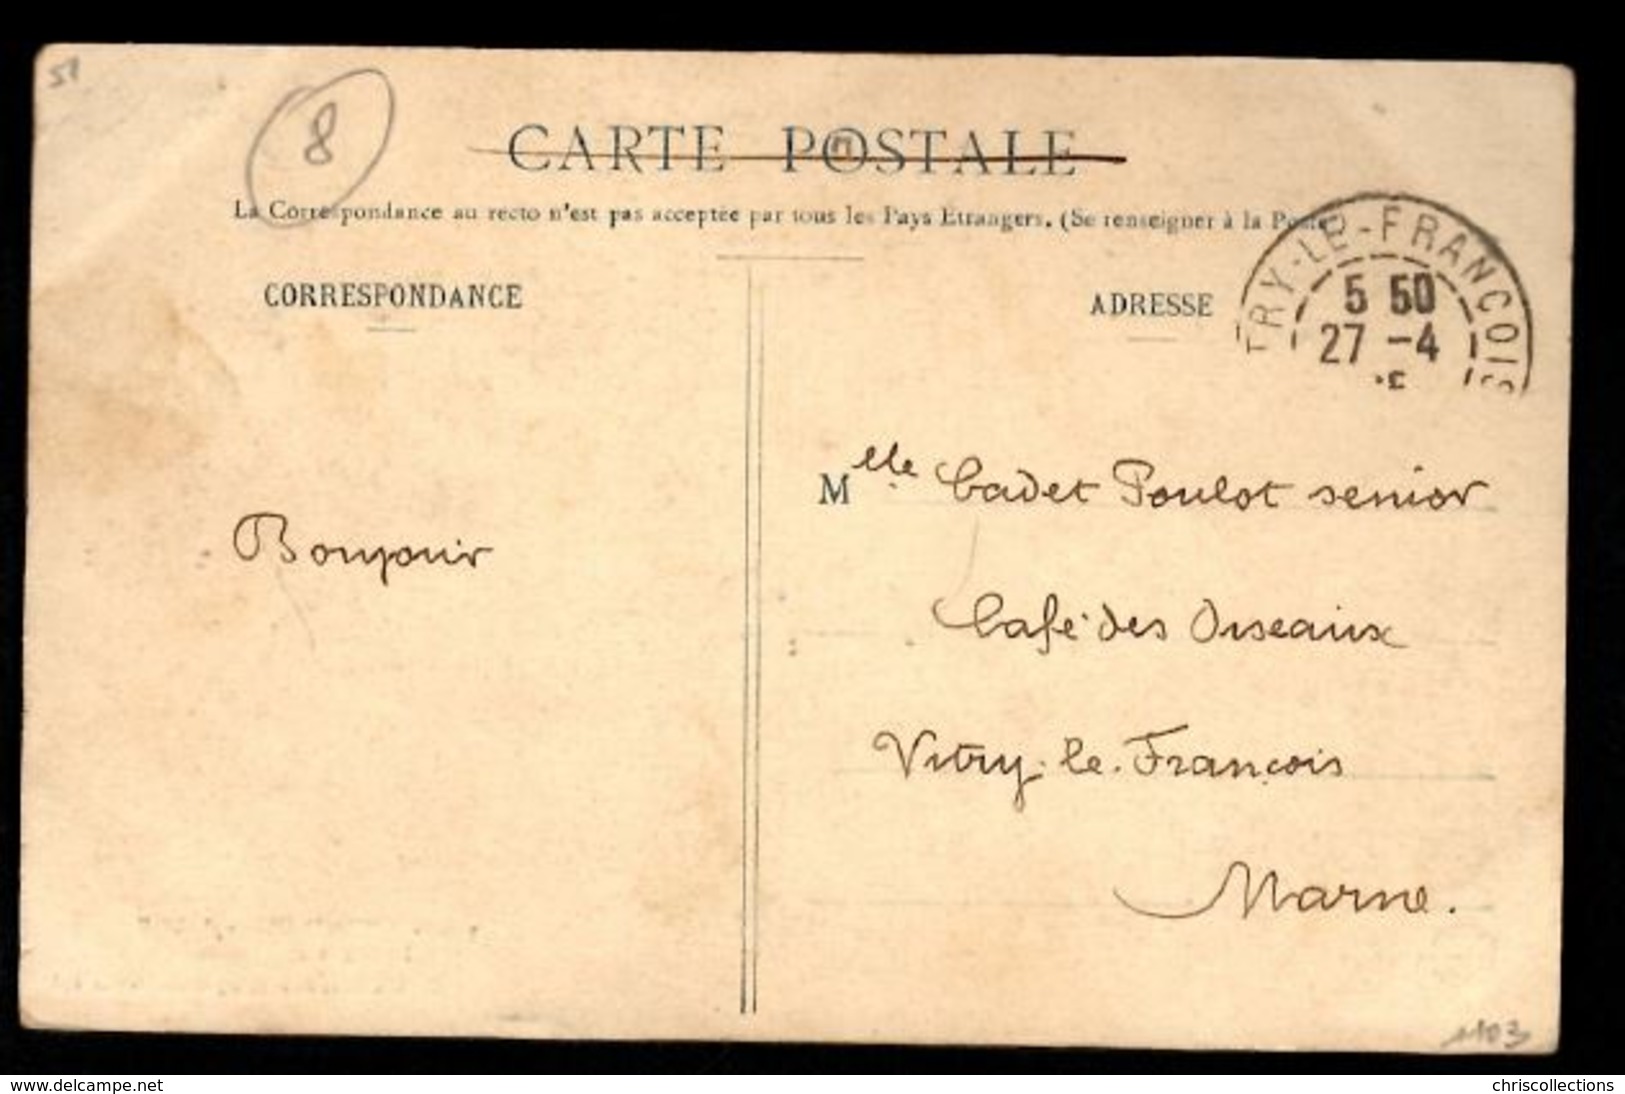 51
8
CARTE POSTALE
La Correspondance au recto n'est pas acceptée par tous les Pays Etrangers. (Se renseigner à la Poste
CORRESPONDANCE
ADRESSE
TRY-LE-FRANÇOIS
5 50
27 -4
Mlle Cadet Poulot senior
Bonjour
Café des Oiseaux
Vitry-le-François
Marne.
1103
www.delcampe.net
chriscollections